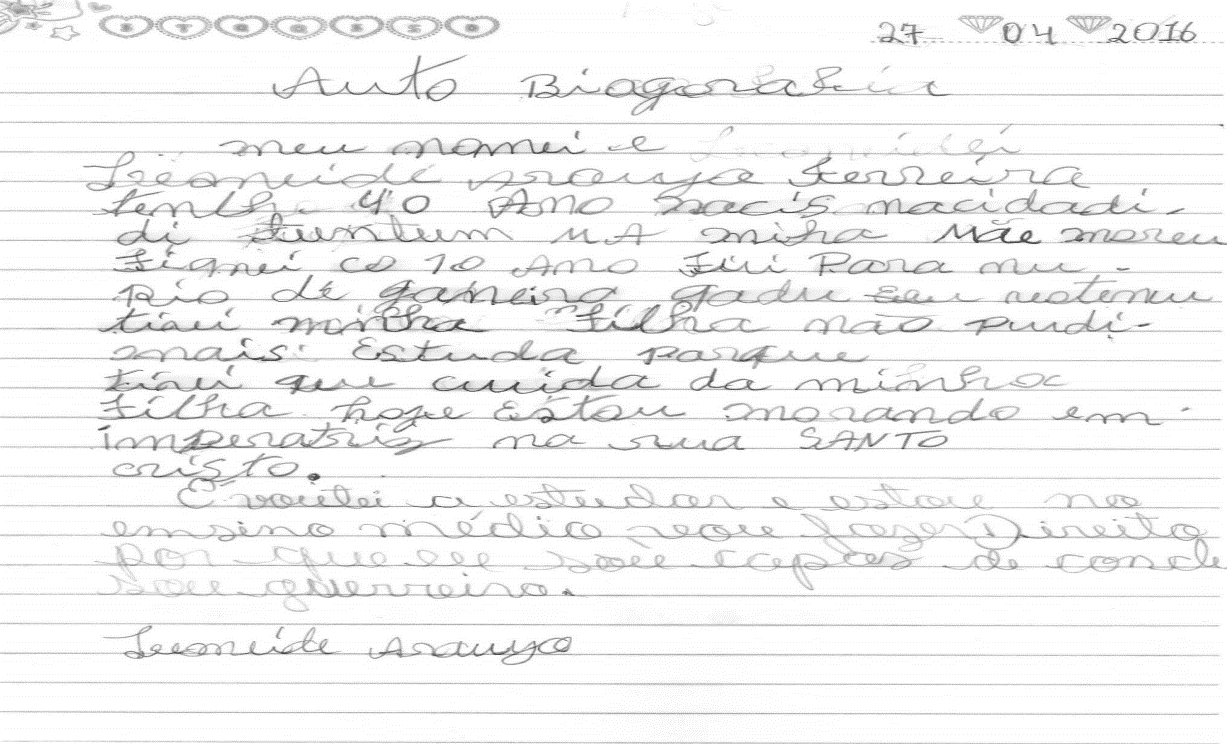 S T Q Q S S D
27 04 2016
Auto Biagorafia
meu nomei e Leoneidei
Leoneide Arauja Ferreira
tenho 40 Ano nacis nacidadi
di tuntum MA minha Mãe moreu
fiquei co 10 Ano fui Para nu
Rio de ganeiro
tiui minha filha não pudi
mais Estuda parque
tiui que cuida da minha
filha hoje Estou morando em
imperatriz na rua SANTO
cristo.
E voutei a estudar e estou no
ensino médio vou fazer Direito
por que eu sou capas de
sou guerreira.
Leoneide Arauja